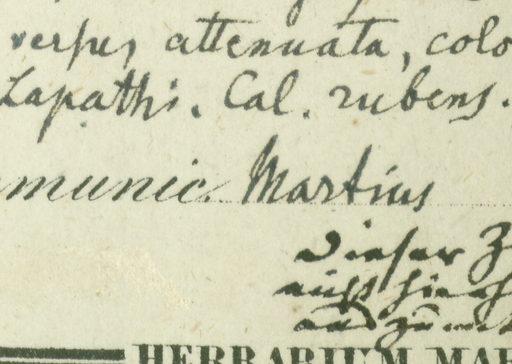 versus attenuata, colo
Lapathi. Cal. rubens.
munic. Martius
Dieser Z
nicht hierh
und zu
HERBARIUM MAR